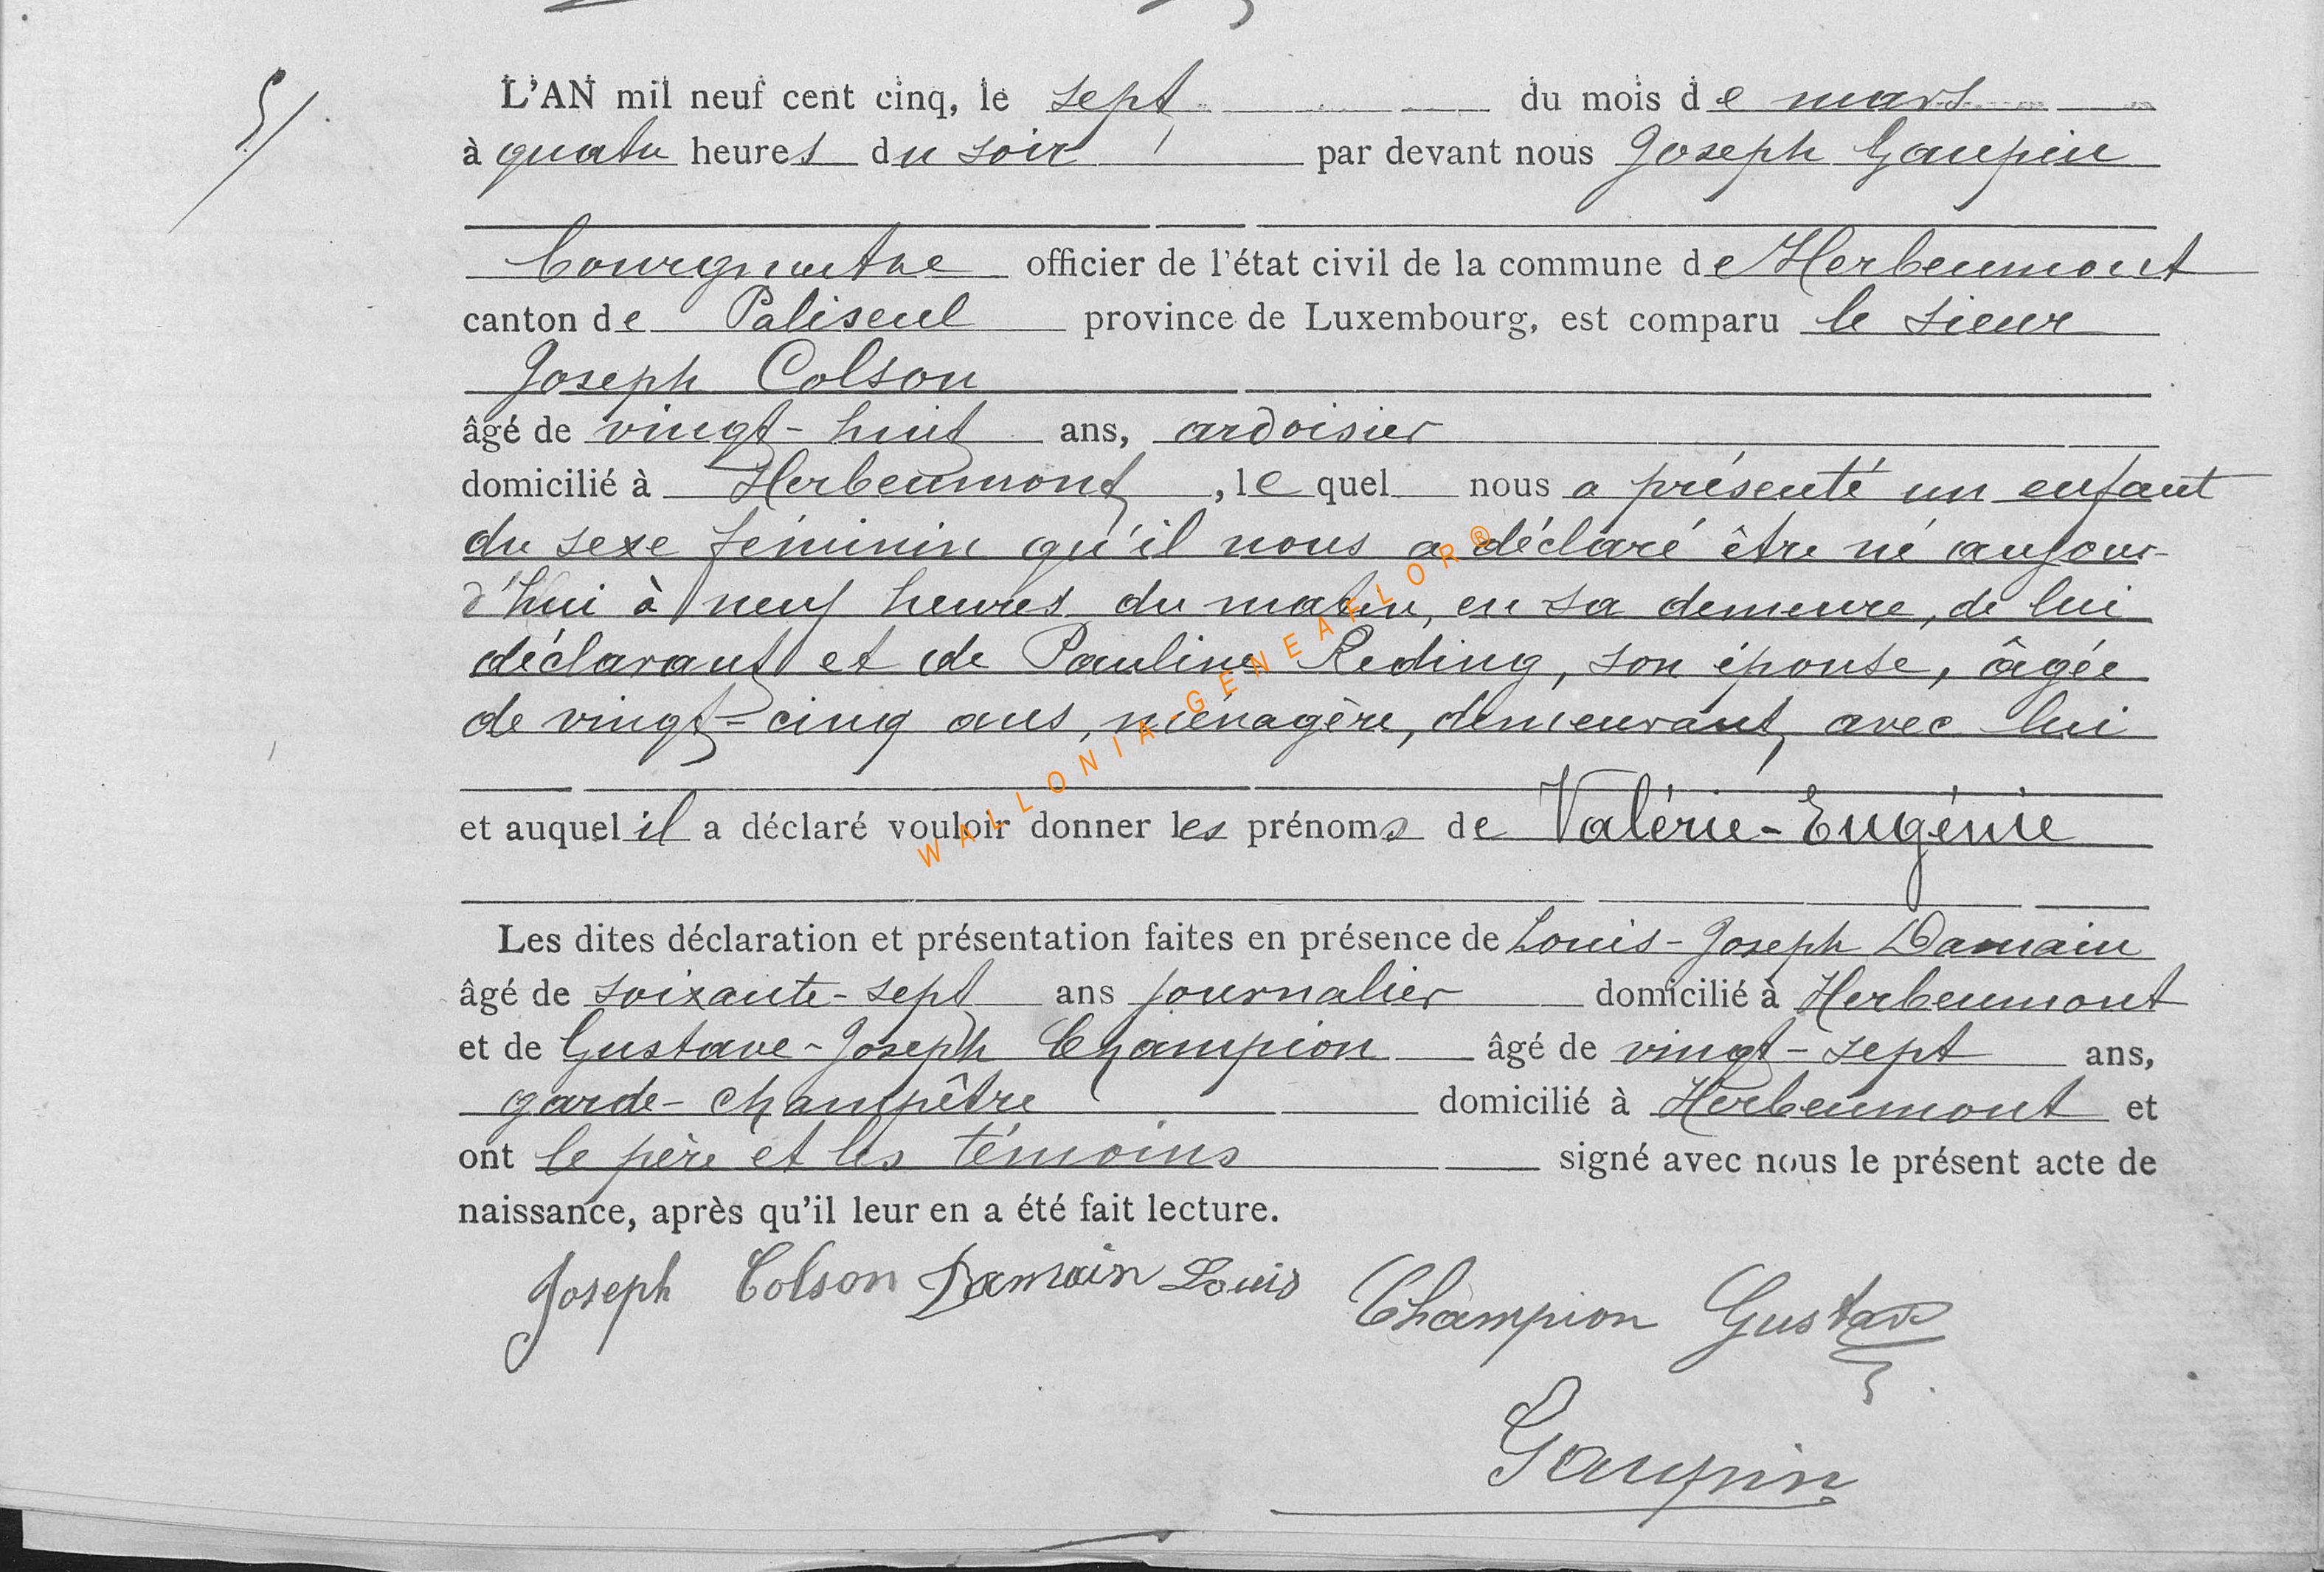 5/
L'AN mil neuf cent cinq, le sept du mois de mars
à quatre heures du soir par devant nous Joseph Gaupin
Bourgmestre officier de l'état civil de la commune de Herbeumont
canton de Paliseul province de Luxembourg, est comparu le sieur
Joseph Colson
âgé de vingt-huit ans, ardoisier
domicilié à Herbeumont, lequel nous a présenté un enfant
du sexe féminin qu'il nous a déclaré être né aujour-
d'hui à neuf heures du matin, en sa demeure, de lui
déclarant et de Pauline Reding, son épouse, âgée
de vingt-cinq ans, ménagère, demeurant avec lui
et auquel il a déclaré vouloir donner les prénoms de Valérie-Eugénie
Les dites déclaration et présentation faites en présence de Louis-Joseph Damain
âgé de soixante-sept ans journalier domicilié à Herbeumont
et de Gustave-Joseph Champion âgé de vingt-sept ans,
garde-champêtre domicilié à Herbeumont et
ont le père et les témoins signé avec nous le présent acte de
naissance, après qu'il leur en a été fait lecture.
Joseph Colson Damain Louis Champion Gustave
Gaupin
WALLONIA-GENEAFLOR®